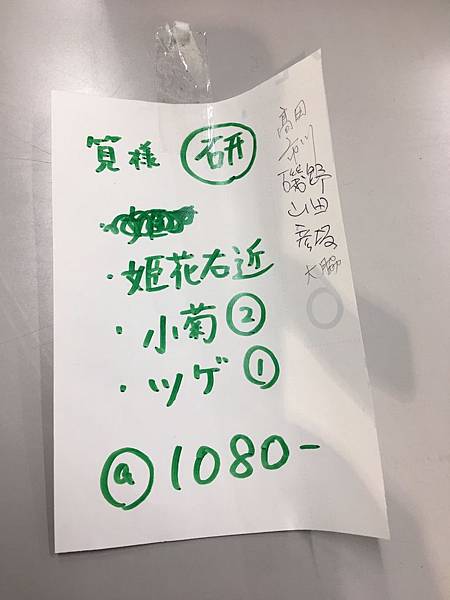 筧様 研
・姫花右近
・小菊 ②
・ツゲ ①
ⓐ 1080-
高田
市川
磯野
山田
彦坂
大脇